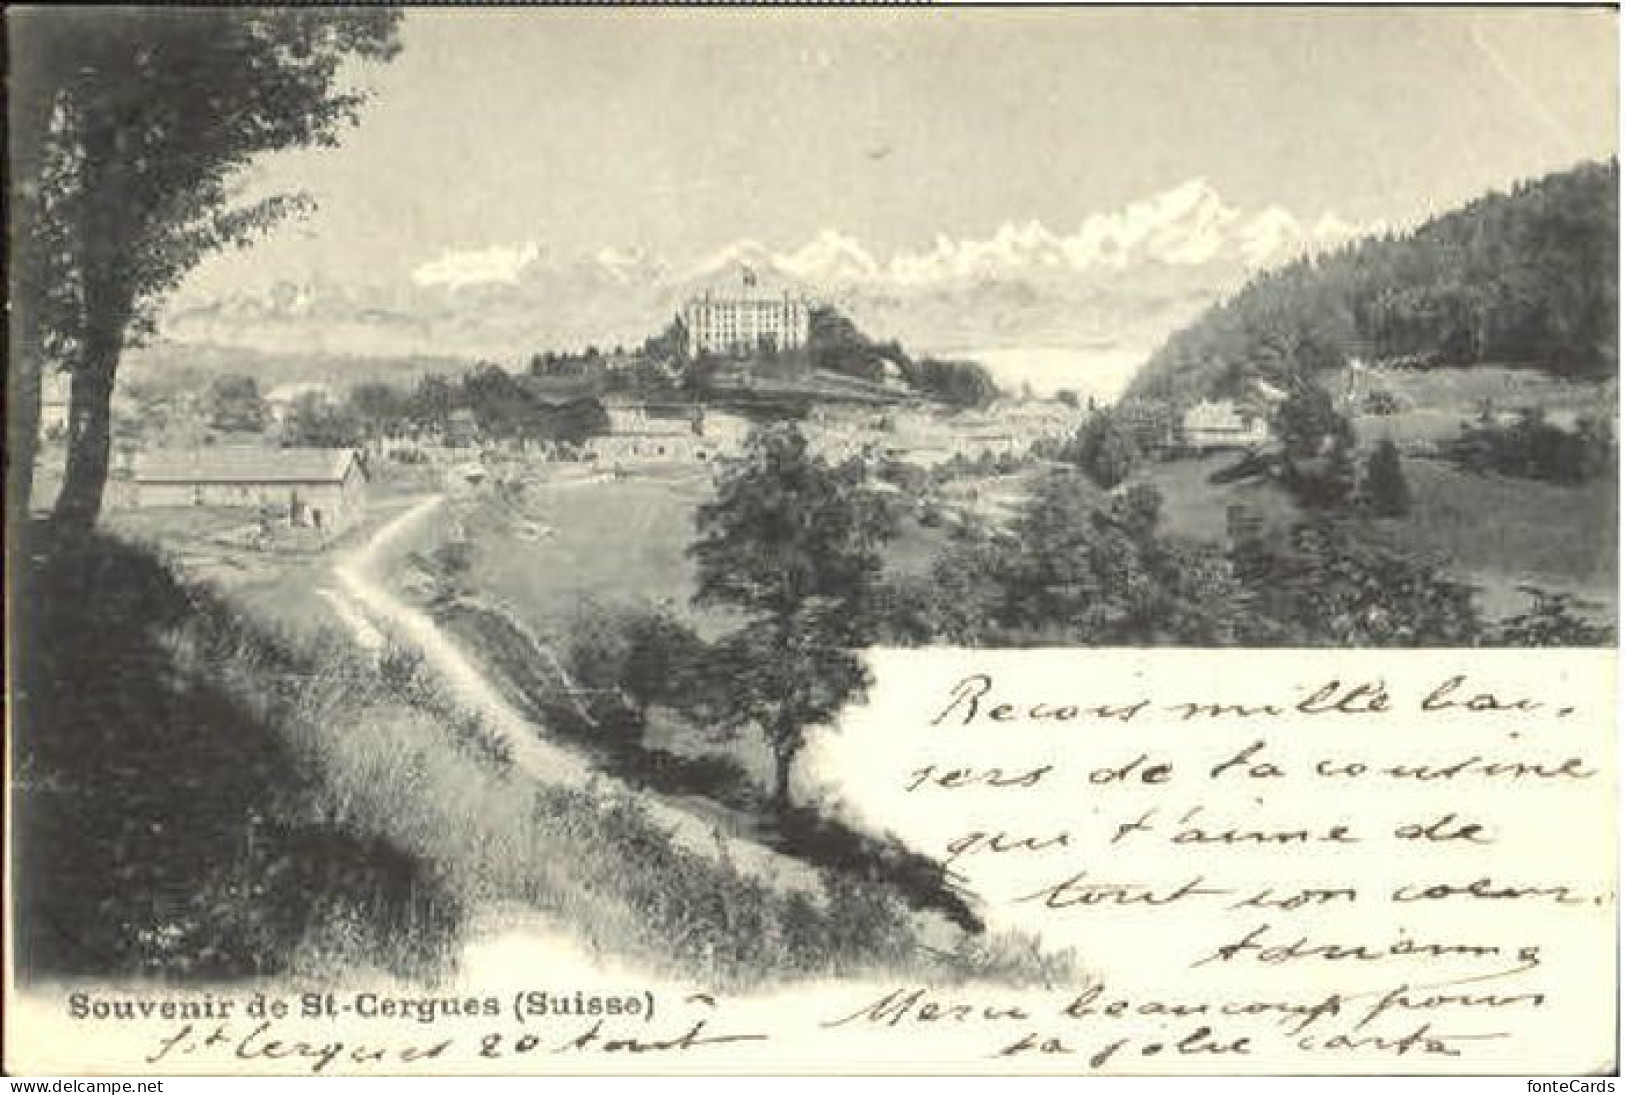 Recois mille bai-
sers de ta cousine
qui t'aime de
tout son coeur.
Adrienne
Souvenir de St-Cergues (Suisse)
Merci beaucoup pour
St Cergues 20 Aout
ta jolie carte
delcampe.net
fonteCards